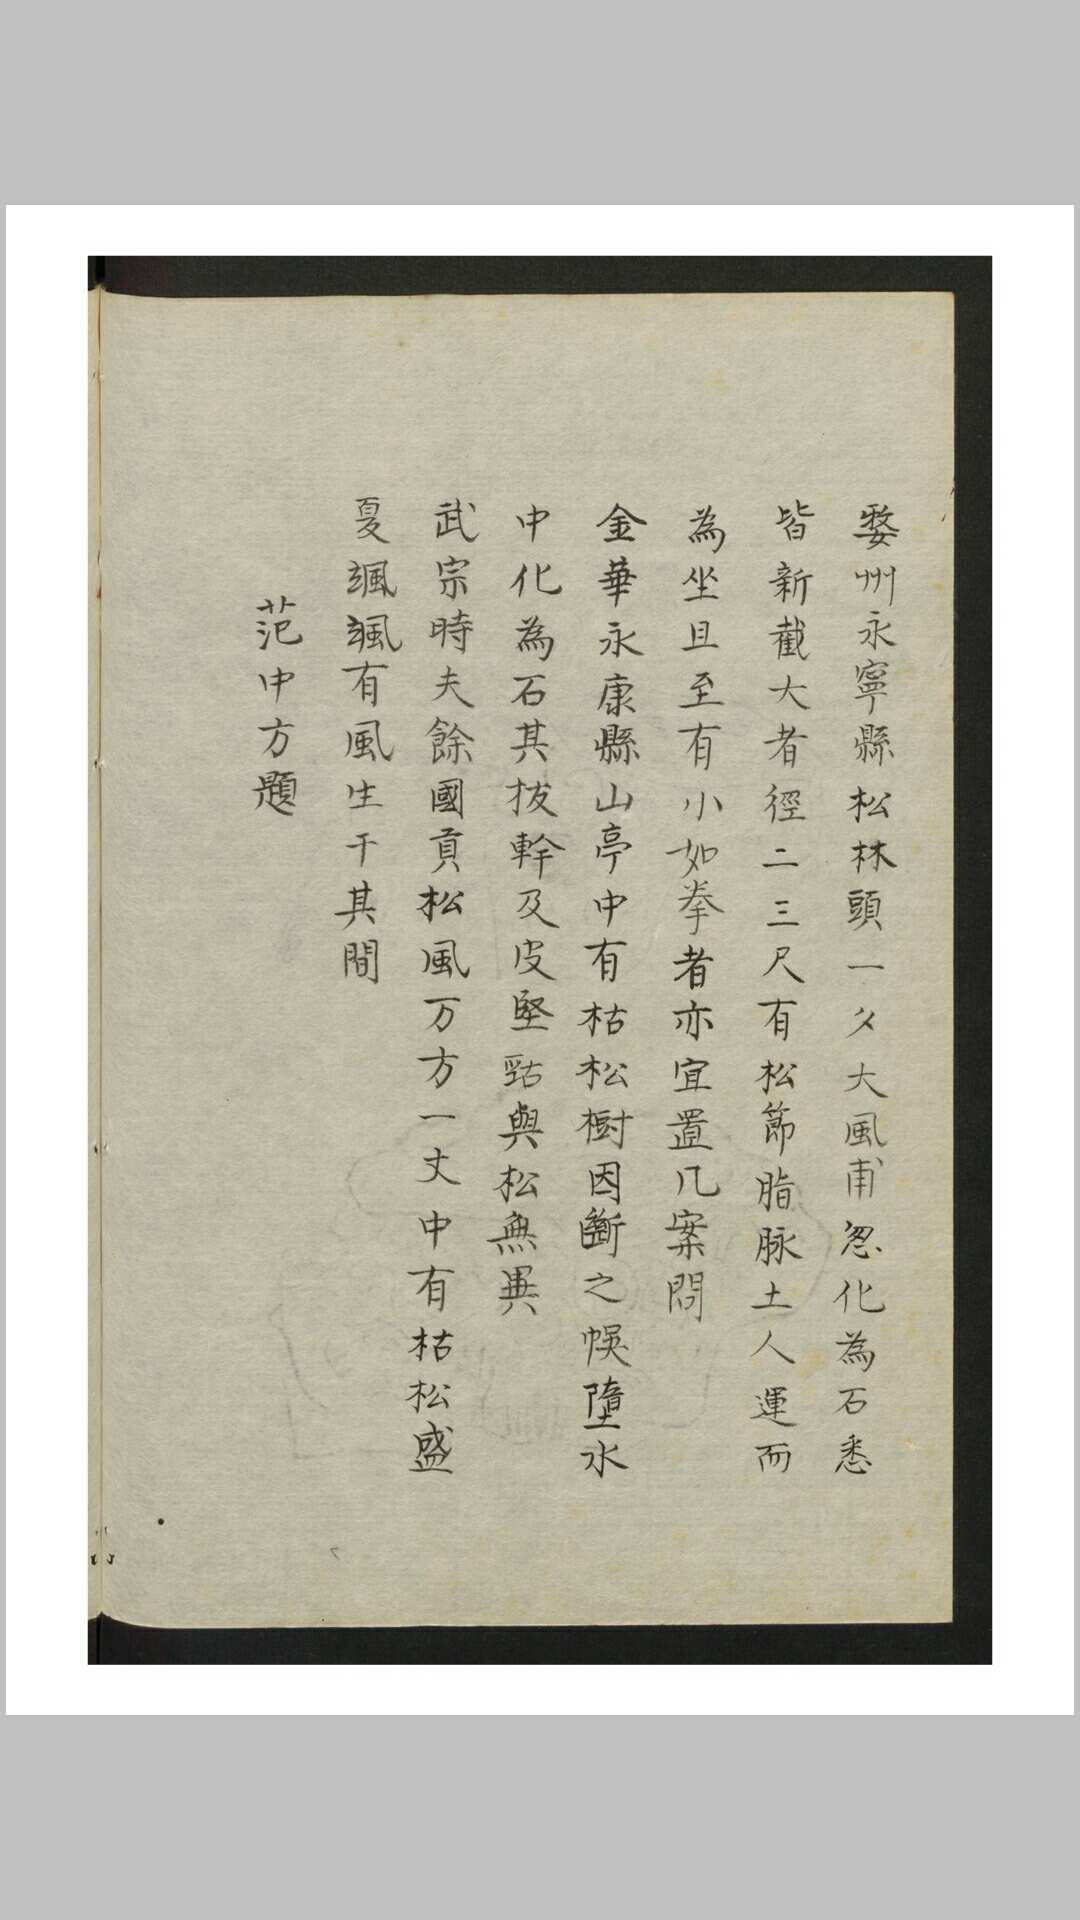 婺州永寧縣松林頭一夕大風甫忽化為石悉
皆新截大者徑二三尺有松節脂脉土人運而
為坐且至有小如拳者亦宜置几案間
金華永康縣山亭中有枯松樹因斷之悞墮水
中化為石其拔幹及皮堅勁與松無異
武宗時夫餘國貢松風石方一丈中有枯松盛
夏颯颯有風生于其間
范中方題